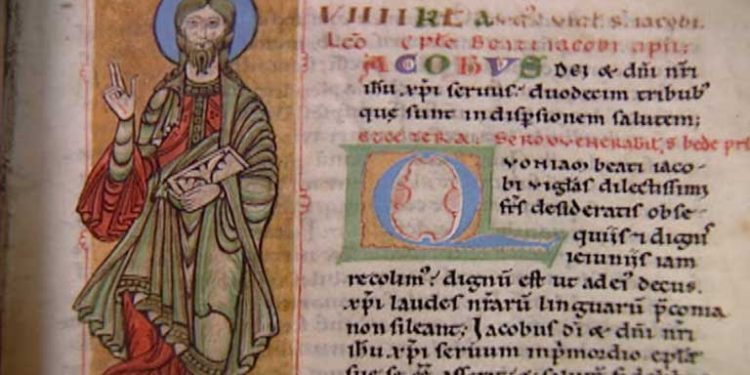 VIIII KLA Augˢ. Vigła sⁱ. iacobi.
Lc̄o epłe beati iacobi apłi.
IACOBVS Dei & dn̄i nr̄i
ihu. xp̄i seruus. duodecim tribub'
quę sunt in dispsione salutem;
Sermo venerabilis bede pr
QVoniam beati iaco-
bi vigłas dilectissimi
frs̄ desideratis obse-
quiis & dignis
ieiuniis iam
recolim'. dignū est ut ad ei' decus.
xp̄i laudes nr̄arū linguarū
non sileant; Jacobus dī & dn̄i nr̄i
ihu. xp̄i seruum in pmordio epłe